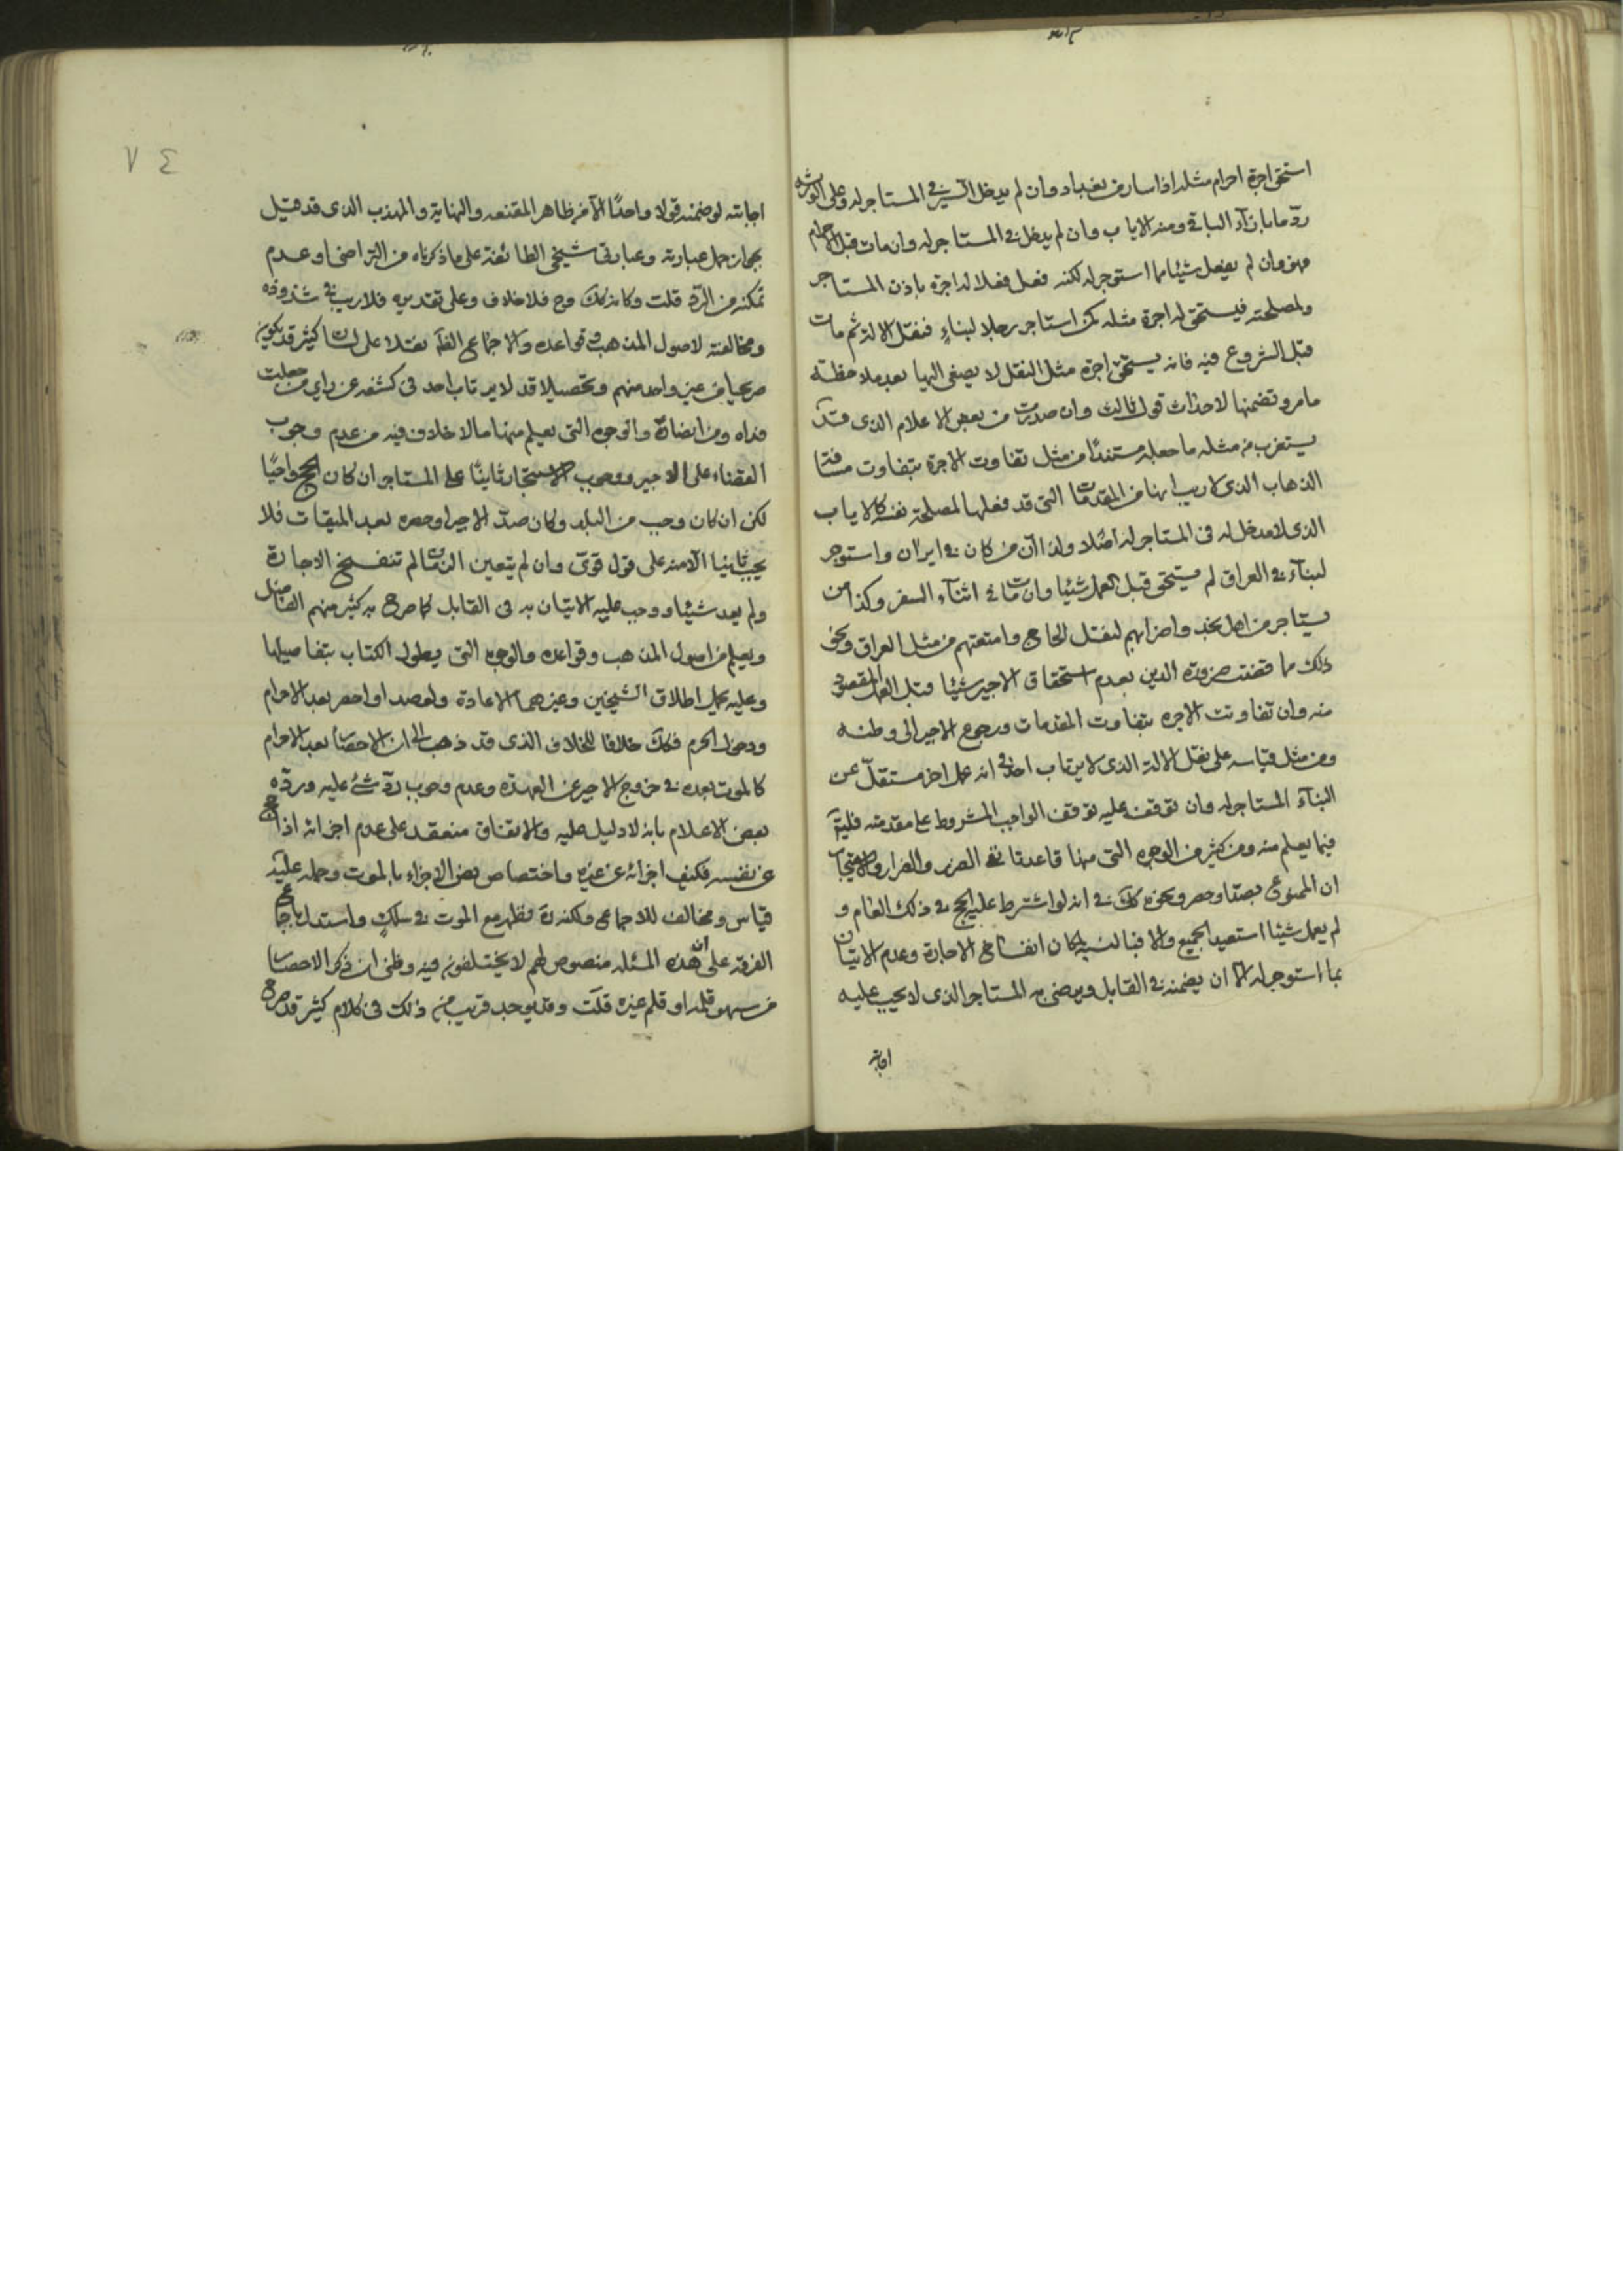 استحق اجرة احرام مثله اذا سار من بغداد وان لم يدخل السير في المستاجر له وعلى الورثة
ردّ ما بازآء الباقي ومنه الاياب وان لم يدخل في المستاجر له وان مات قبل الاحرام
فهو وان لم يفعل شيئا مما استوجر له لكنه فعل فعلا له اجرة باذن المستاجر
ولمصلحته فيستحق له اجرة مثله كمن استاجر رجلا لبناءٍ فنقل الالة ثم مات
قبل الشروع فيه فانه يستحق اجرة مثل النقل لا يصغى اليها بعد ملاحظة
ما مر وتضمنها لاحداث قول ثالث وان صدرت من بعض الاعلام الذى قد
يستغرب من مثله ما جعله مستندًا من مثل تفاوت الاجرة بتفاوت مسافة
الذهاب الذى لا ريب انها من المقدمات التى قد فعلها لمصلحة نفسه كالاياب
الذى لا مدخل له فى المستاجر له اصلا ولذا ان من كان في ايران واستوجر
لبنآء في العراق لم يستحق قبل العمل شيئا وان مات في اثنآء السفر وكذا من
يستاجر من اهل نجد واضرابهم لنقل الحاج وامتعتهم من مثل العراق ونحو
ذلك مما قضت ضرورة الدين بعدم استحقاق الاجير شيئا قبل العمل المقصود
منه وان تفاوتت الاجرة بتفاوت المقدمات ورجوع الاجير الى وطنه
ومن مثل قياسه على نقل الالة الذى لا يرتاب احد في انه عمل اخر مستقلّ عن
البنآء المستاجر له وان توقف عليه توقف الواجب المشروط على مقدمته
فيما يعلم منه ومن كثير من الوجوه التى منها قاعدتا نفي الضرر والضرار
ان الممنوع بصدّ او حصر ونحوه كك في انه لو اشترط عليه الحج في ذلك العام و
لم يعمل شيئا استعيد الجميع والا فبالنسبة لمكان انفساخ الاجارة وعدم الاتيان
بما استوجر له الا ان يضمنه في القابل ويرضى به المستاجر الذى لا يجب عليه
اجابته
٧٤
اجابته لو ضمنه قولا واحدًا الا من ظاهر المقنعه والنهاية والمهذب الذى قد قيل
بجواز حمل عبارته وعبارتى شيخى الطائفة على ما ذكرناه من التراضى او عدم
تمكنه من الردّ قلت وكانه كك وح فلا خلاف وعلى تقديره فلا ريب في شذوذه
ومخالفته لاصول المذهب وقواعده والاجماع نقلا على لسان كثير قد يكون
صريحا من غير واحد منهم وتحصيلا قد لا يرتاب احد فى كشفه عن راى من جعلت
فداه ومن انضارة والوجوه التى يعلم منها ما لا خلاف فيه من عدم وجوب
القضاء على الاجير ووجوب الاستيجار ثانيًا على المستاجر ان كان الحج واجبًا
لكن ان كان وجب من البلد وكان صدّ الاجير او حصره بعد الميقات فلا
يجب ثانيا الا منه على قول قوى وان لم يتعين الزمان لم تنفسخ الاجارة
ولم يعد شيئا ووجب عليه الاتيان به فى القابل كما صرح به كثير منهم الفاضل
ويعلم من اصول المذهب وقواعده والوجوه التى يطول الكتاب بتفاصيلها
وعليه يحمل اطلاق الشيخين وغيرهما الاعادة ولو صد او احصر بعد الاحرام
ودخول الحرم فكك خلافا للخلاف الذى قد ذهب الى ان الاحصار بعد الاحرام
كالموت بعده في خروج الاجير عن العهدة وعدم وجوب ردّ شئ عليه وردّه
بعض الاعلام بانه لا دليل عليه والاتفاق منعقد على عدم اجزائه اذا حج
عن نفسه فكيف اجزائه عن غيره واختصاص نص الاجزاء بالموت وحمله عليه
قياس ومخالف للاجماع ولكنه نظمه مع الموت في سلكٍ واستدل باجماع
الفرقة على ان هذه المسئله منصوص لهم لا يختلفون فيه وظنى ان ذكر الاحصار
من سهو قلمه او قلم غيره قلت وقد يوجد قريب من ذلك فى كلام كثير قد صرح